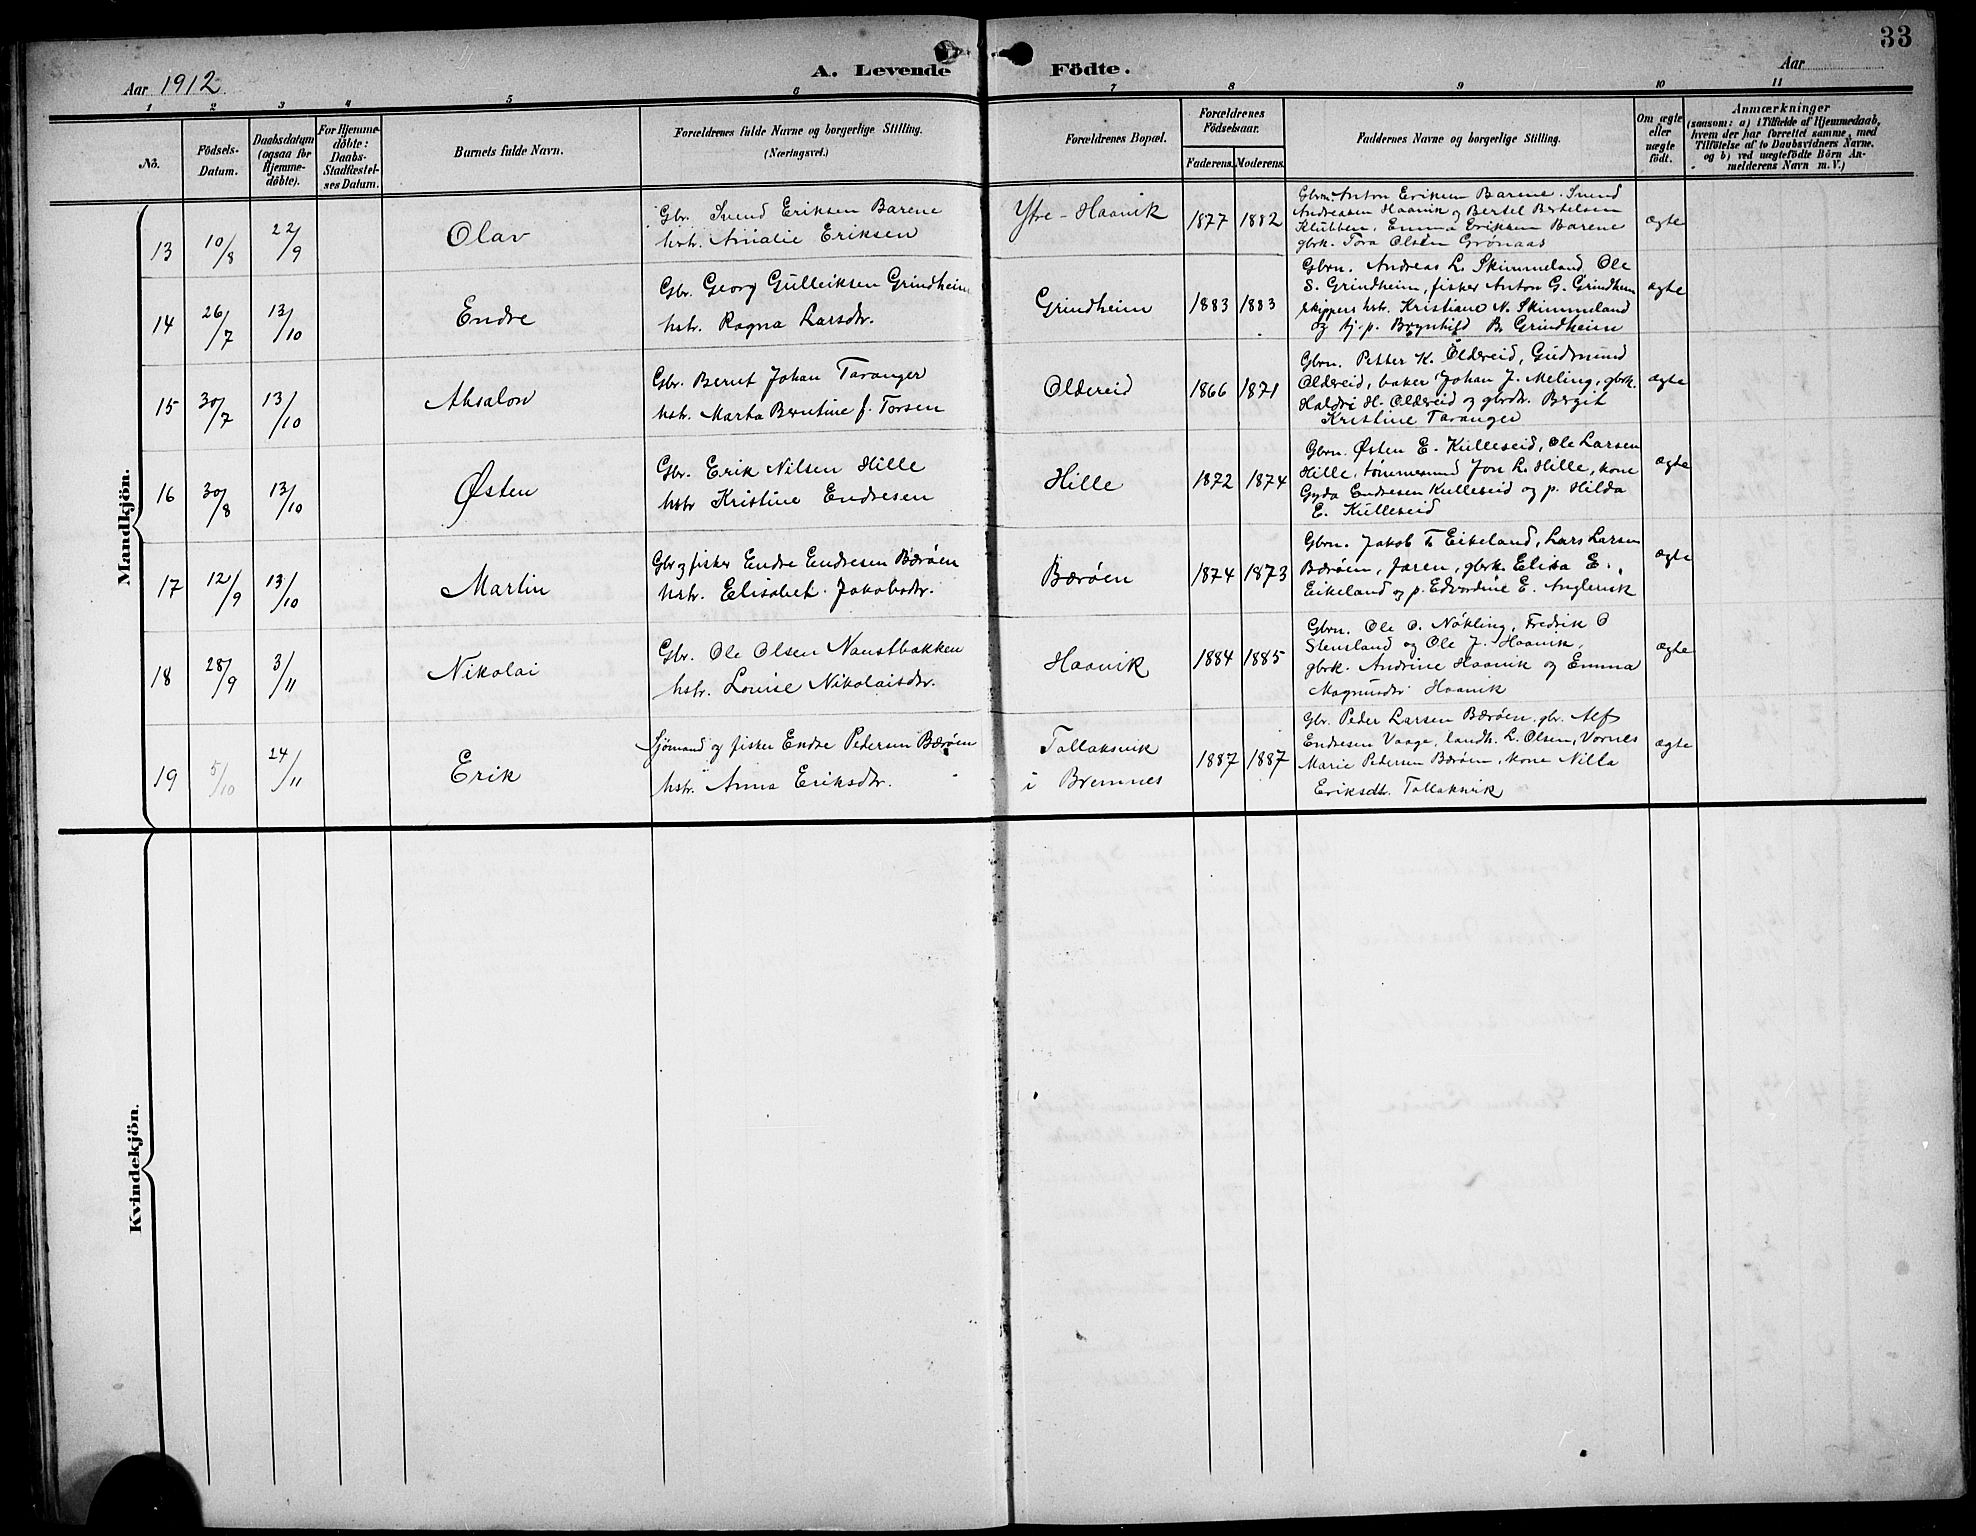 33
Aar 1912
A. Levende Födte.
Aar
1 2 3 4 5 6 7 8 9 10 11
No.
Födsels-
Datum.
Daabsdatum
(ogsaa for
Hjemme-
døbte).
For Hjemme-
döbte:
Daabs-
Stadfæstel-
ses Datum.
Barnets fulde Navn.
Forældrenes fulde Navne og borgerlige Stilling.
(Næringsvei.)
Forældrenes Bopæl.
Forældrenes
Födselsaar.
Faderens. Moderens.
Faddernes Navne og borgerlige Stilling.
Om ægte
eller
uægte
födt.
Anmærkninger
(saasom: a) i Tilfælde af Hjemmedaab,
hvem der har forrettet samme, med
Tilföielse af to Daabsvidners Navne.
og b) ved uægtefödte Börn An-
melderens Navn m. V.)
Mandkjön.
13 10/8 22/9 Olav
Gbr. Svend Eriksen Barene
hstr. Amalie Eriksen
Ytre-Haavik 1877 1882
Gbrn. Anton Eriksen Barene. Svend
Andreasen Haavik og Bertel Bertelsen
Klubben, Emma Eriksen Barene
gbrk. Tora Olsen Grönaas
ægte
14 26/7 13/10 Endre
Gbr. Georg Gulleiksen Grindheim
hstr. Ragna Larsdtr.
Grindheim 1883 1883
Gbrn. Andreas L. Skimmeland Ole
S. Grindheim, fisker Anton G. Grindheim
skippers hstr. Kristiane N. Skimmeland
og tj. p. Brynhild B. Grindheim
ægte
15 30/7 13/10 Absalon
Gbr. Bernt Johan Taranger
hstr. Marta Berntine f. Torsen
Oldereid 1866 1871
Gbrn. Petter K. Oldereid, Gudmund
Oldereid, baker Johan J. Meling, gbrk.
Haldri H. Oldereid og gbrdr. Bergit
Kristine Taranger
ægte
16 30/8 13/10 Østen
Gbr. Erik Nilsen Hille
hstr Kristine Endresen
Hille 1872 1874
Gbrn. Østen E. Kulleseid, Ole Larsen
Hille, tømmermand Jon L. Hille, kone
Gyda Endresen Kulleseid og p. Hilda
E. Kulleseid
ægte
17 12/9 13/10 Martin
Gbr og fisker Endre Endresen Bærøen
hstr. Elisabet Jakobsdtr.
Bærøen 1874 1873
Gbrn. Jakob T. Eikeland, Lars Larsen
Bærøen, faren, gbrk. Elisa E.
Eikeland og p. Edvardine E.
ægte
18 28/9 3/11 Nikolai
Gbr. Ole Olsen Naustbakken
hstr. Louise Nikolaisdtr.
Haavik 1884 1885
Gbrn. Ole O. Nökling, Fredrik O
Stensland og Ole J. Haavik,
gbrk. Andrine Haavik og Emma
Magnusdtr Haavik
ægte
19 5/10 24/11 Erik
Sjömand og fisker Endre Pedersen Bærøen
hstr. Anna Eriksdtr.
Tollaksvik
i Bremnes
1887 1887
Gbr. Peder Larsen Bærøen, gbr. Alf
Endresen Vaage, landh. L. Olsen, Vornes
Marie Pedersen Bærøen, kone Nilla
Eriksdtr. Tollaksvik
ægte
Kvindekjön.